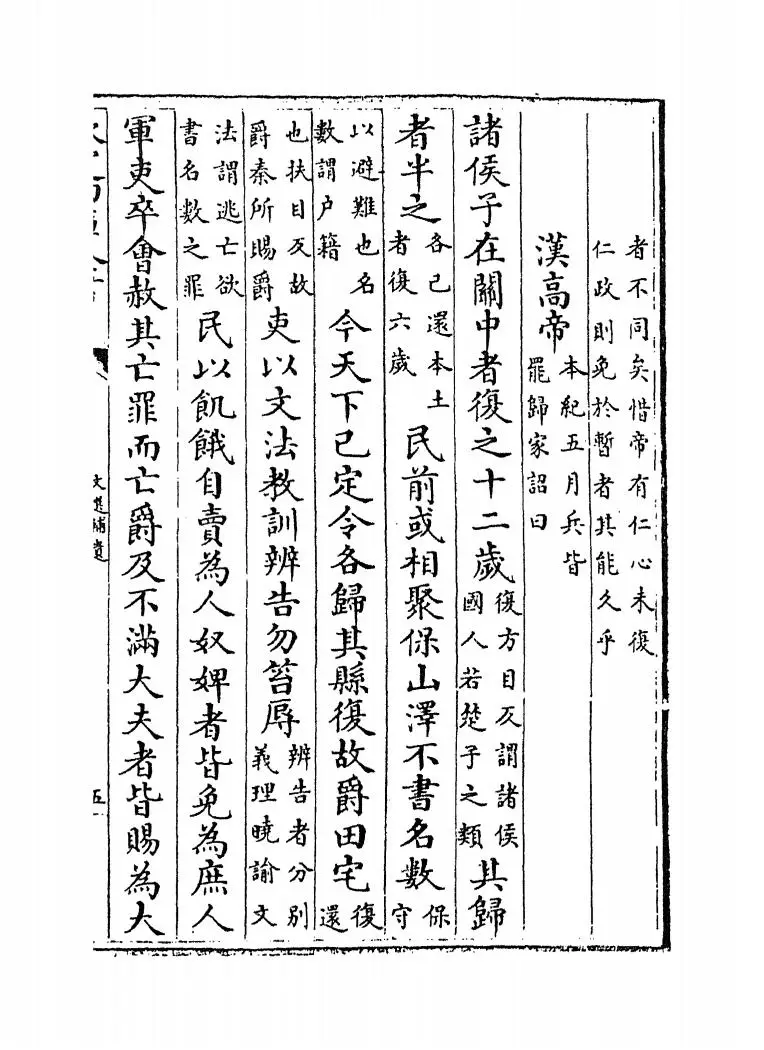 者不同矣惜帝有仁心未復
仁政則免於暫者其能久乎
漢高帝本紀五月兵皆罷歸家詔曰
諸侯子在關中者復之十二歲復方目反謂諸侯國人若楚子之類其歸
者半之各已還本土者復六歲民前或相聚保山澤不書名數保守
以避難也名數謂户籍今天下已定令各歸其縣復故爵田宅復還
也扶目反故爵秦所賜爵吏以文法教訓辨告勿笞辱辨告者分别義理曉諭文
法謂逃亡欲書名數之罪民以飢餓自賣為人奴婢者皆免為庶人
軍吏卒會赦其亡罪而亡爵及不滿大夫者皆賜為大
文選補遺
五